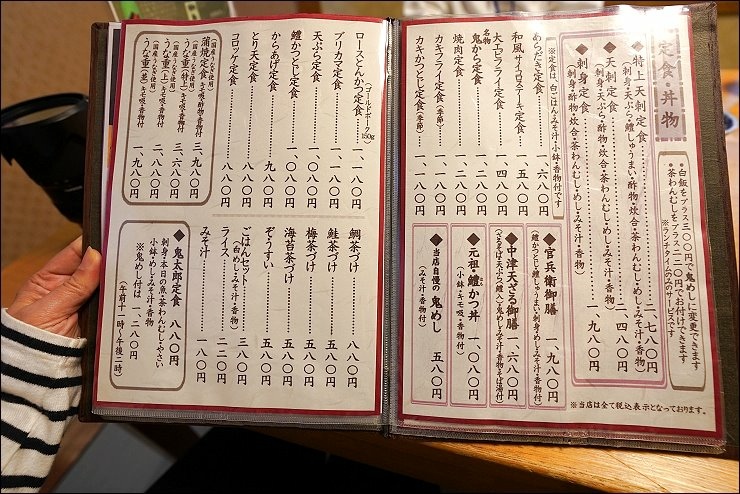 定食・丼物
・白飯をプラス三〇〇円で鬼めしに変更できます
・茶わんむしをプラス一二〇円でお付けできます
※ランチタイムのみのサービスです
◆特上天刺定食
(刺身・天ぷら・鱧しゅうまい・酢物・炊合・茶わんむし・めし・みそ汁・香物)
二、七八〇円
◆天刺定食
(刺身・天ぷら・酢物・炊合・茶わんむし・めし・みそ汁・香物)
二、四八〇円
◆刺身定食
(刺身・酢物・炊合・茶わんむし・めし・みそ汁・香物)
一、九八〇円
※定食は、白ごはん・みそ汁・小鉢・香物付です
あらだき定食 一、六八〇円
和風サイコロステーキ定食 一、五八〇円
大エビフライ定食 一、四八〇円
名物 鬼から定食 一、二八〇円
焼肉定食 一、二八〇円
カキフライ定食(季節) 一、一八〇円
カキかつとじ定食(季節) 一、一八〇円
◆官兵衛御膳 一、九八〇円
(鱧かつとじ・鱧しゅうまい・刺身・めし・みそ汁・香物付)
◆中津天ざる御膳 一、六八〇円
(ざるそば・天ぷら(鱧入)・鬼めし・みそ汁・香物・そば湯付)
◆元祖・鱧かつ丼 一、〇八〇円
(小鉢・キモ吸・香物付)
◆当店自慢の 鬼めし 五八〇円
(みそ汁・香物付)
※当店は全て税込表示となっております。
ロースとんかつ定食(ゴールドポーク150g) 一、一八〇円
ブリカマ定食 一、一八〇円
天ぷら定食 一、〇八〇円
鱧かつとじ定食 一、〇八〇円
からあげ定食 九八〇円
とり天定食 八八〇円
コロッケ定食 八八〇円
(国産うなぎ使用)
蒲焼定食 キモ吸・酢物・香物付 三、九八〇円
(国産うなぎ使用)
うな重(特上) キモ吸・香物付 三、六八〇円
(国産うなぎ使用)
うな重(上) キモ吸・香物付 二、八八〇円
うな重(並) キモ吸・香物付 一、九八〇円
鯛茶づけ 八八〇円
鮭茶づけ 五八〇円
梅茶づけ 五八〇円
海苔茶づけ 五八〇円
ぞうすい 五八〇円
ごはんセット 三八〇円
(白めし・みそ汁・香物)
ライス 二二〇円
みそ汁 一八〇円
◆鬼太郎定食 八八〇円
刺身・本日の魚・茶わんむし・やさい
小鉢・めし・みそ汁・香物
※鬼めし付は 一、二八〇円
(午前十一時〜午後二時)